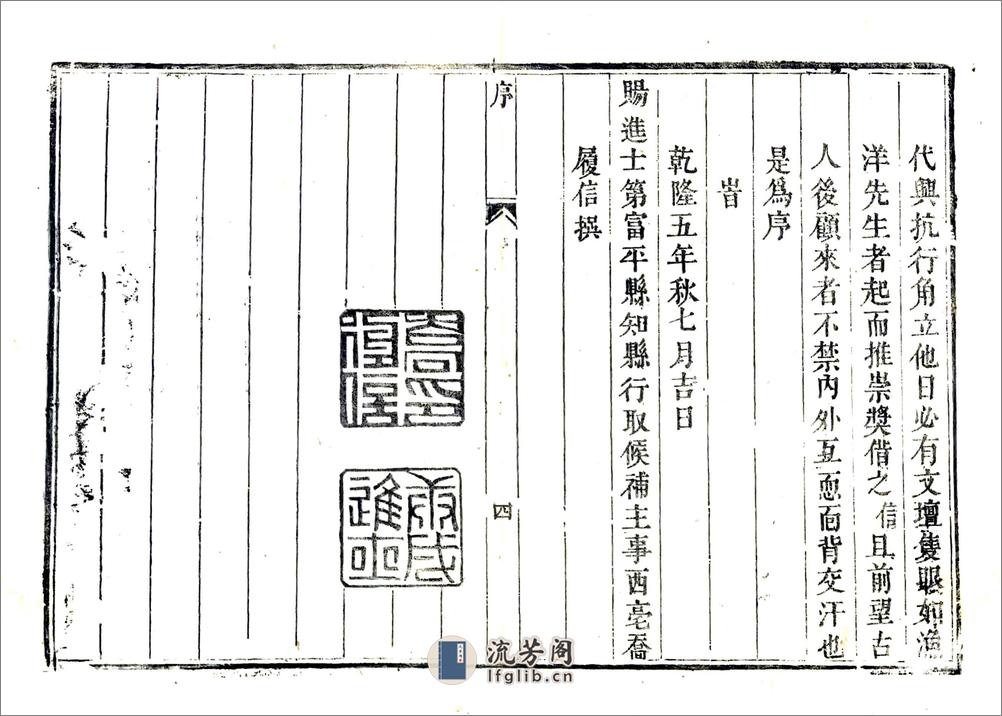 代興抗行角立他日必有文壇隻眼如漁
洋先生者起而推崇獎借之信且前望古
人後顧來者不禁內外互恧面背交汗也
是爲序
旹
乾隆五年秋七月吉日
賜進士第富平縣知縣行取候補主事西亳喬
履信撰
序
四
喬印履信
丙戌進士
流芳阁
lfglib.cn